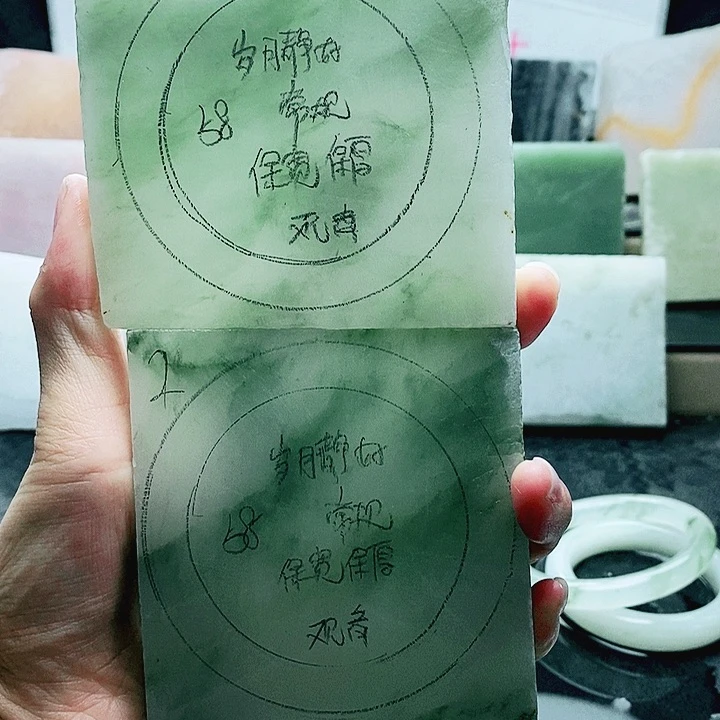 岁月静好
常规
58
保宽 保厚
观音
2
岁月静好
常规
58
保宽 保厚
观音